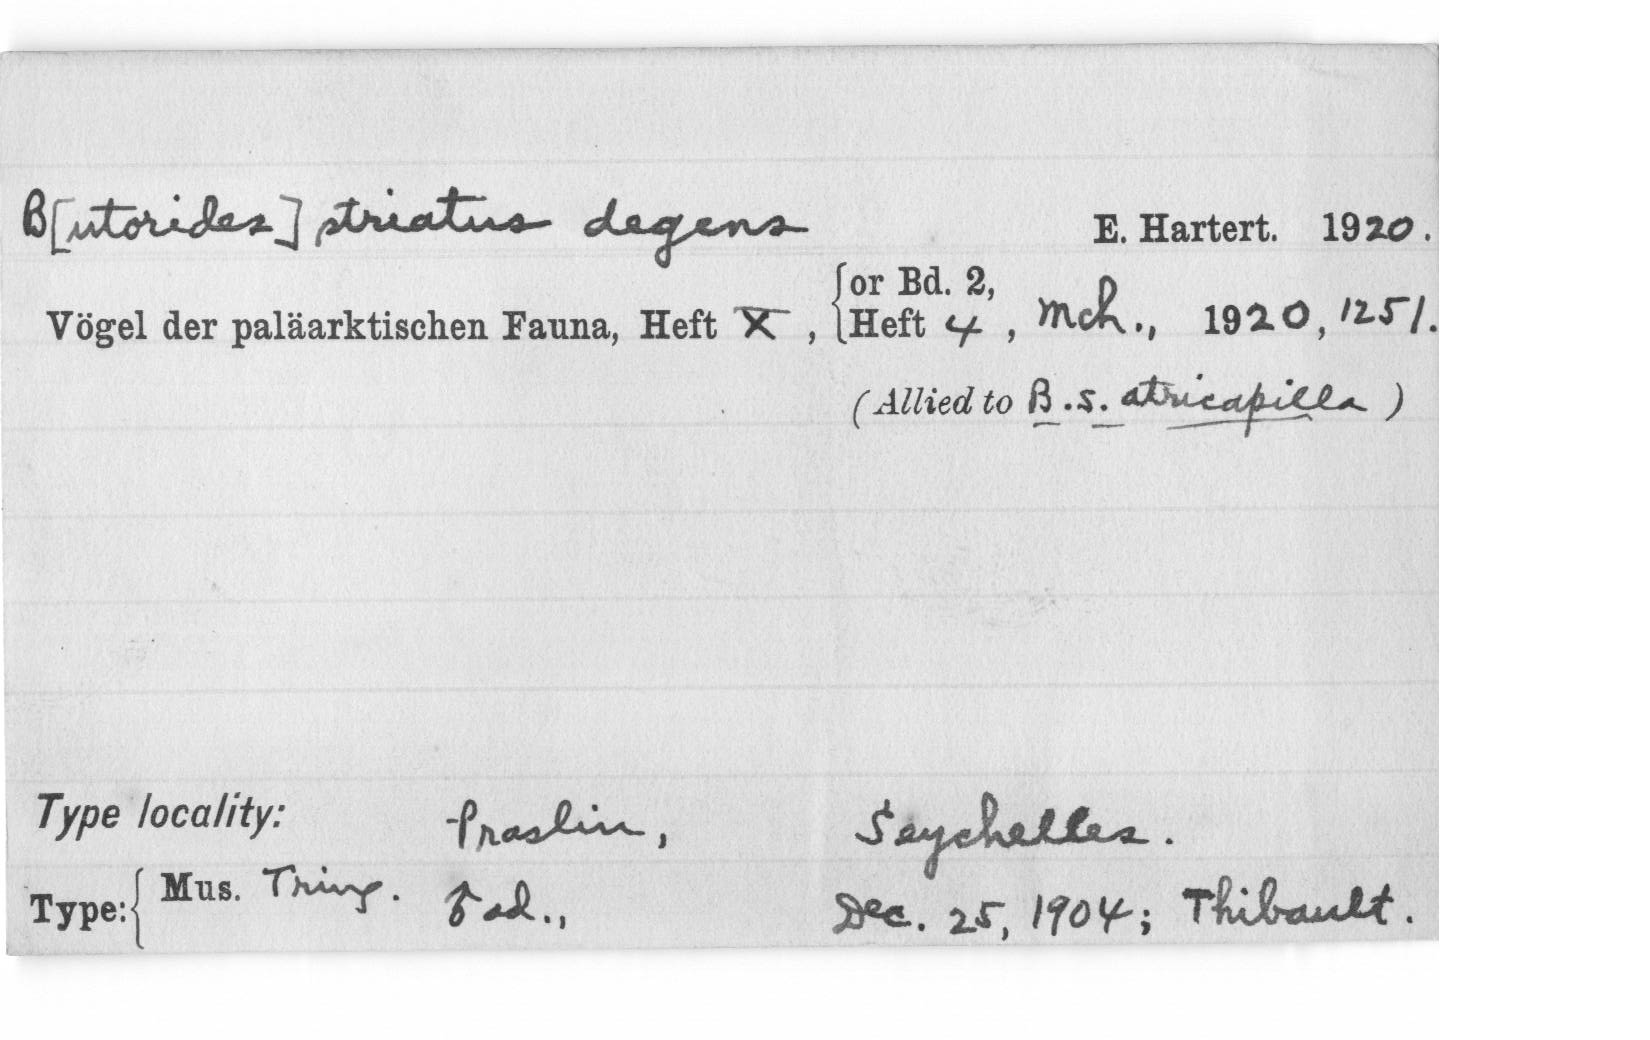 B[utorides] striatus degens E. Hartert. 1920.
Vögel der paläarktischen Fauna, Heft X, {or Bd. 2, Heft 4, Mch., 1920, 1251.
(Allied to B.s. atricapilla)
Type locality: Praslin, Seychelles.
Type:{ Mus. Tring. ♂ ad., Dec. 25, 1904; Thibault.